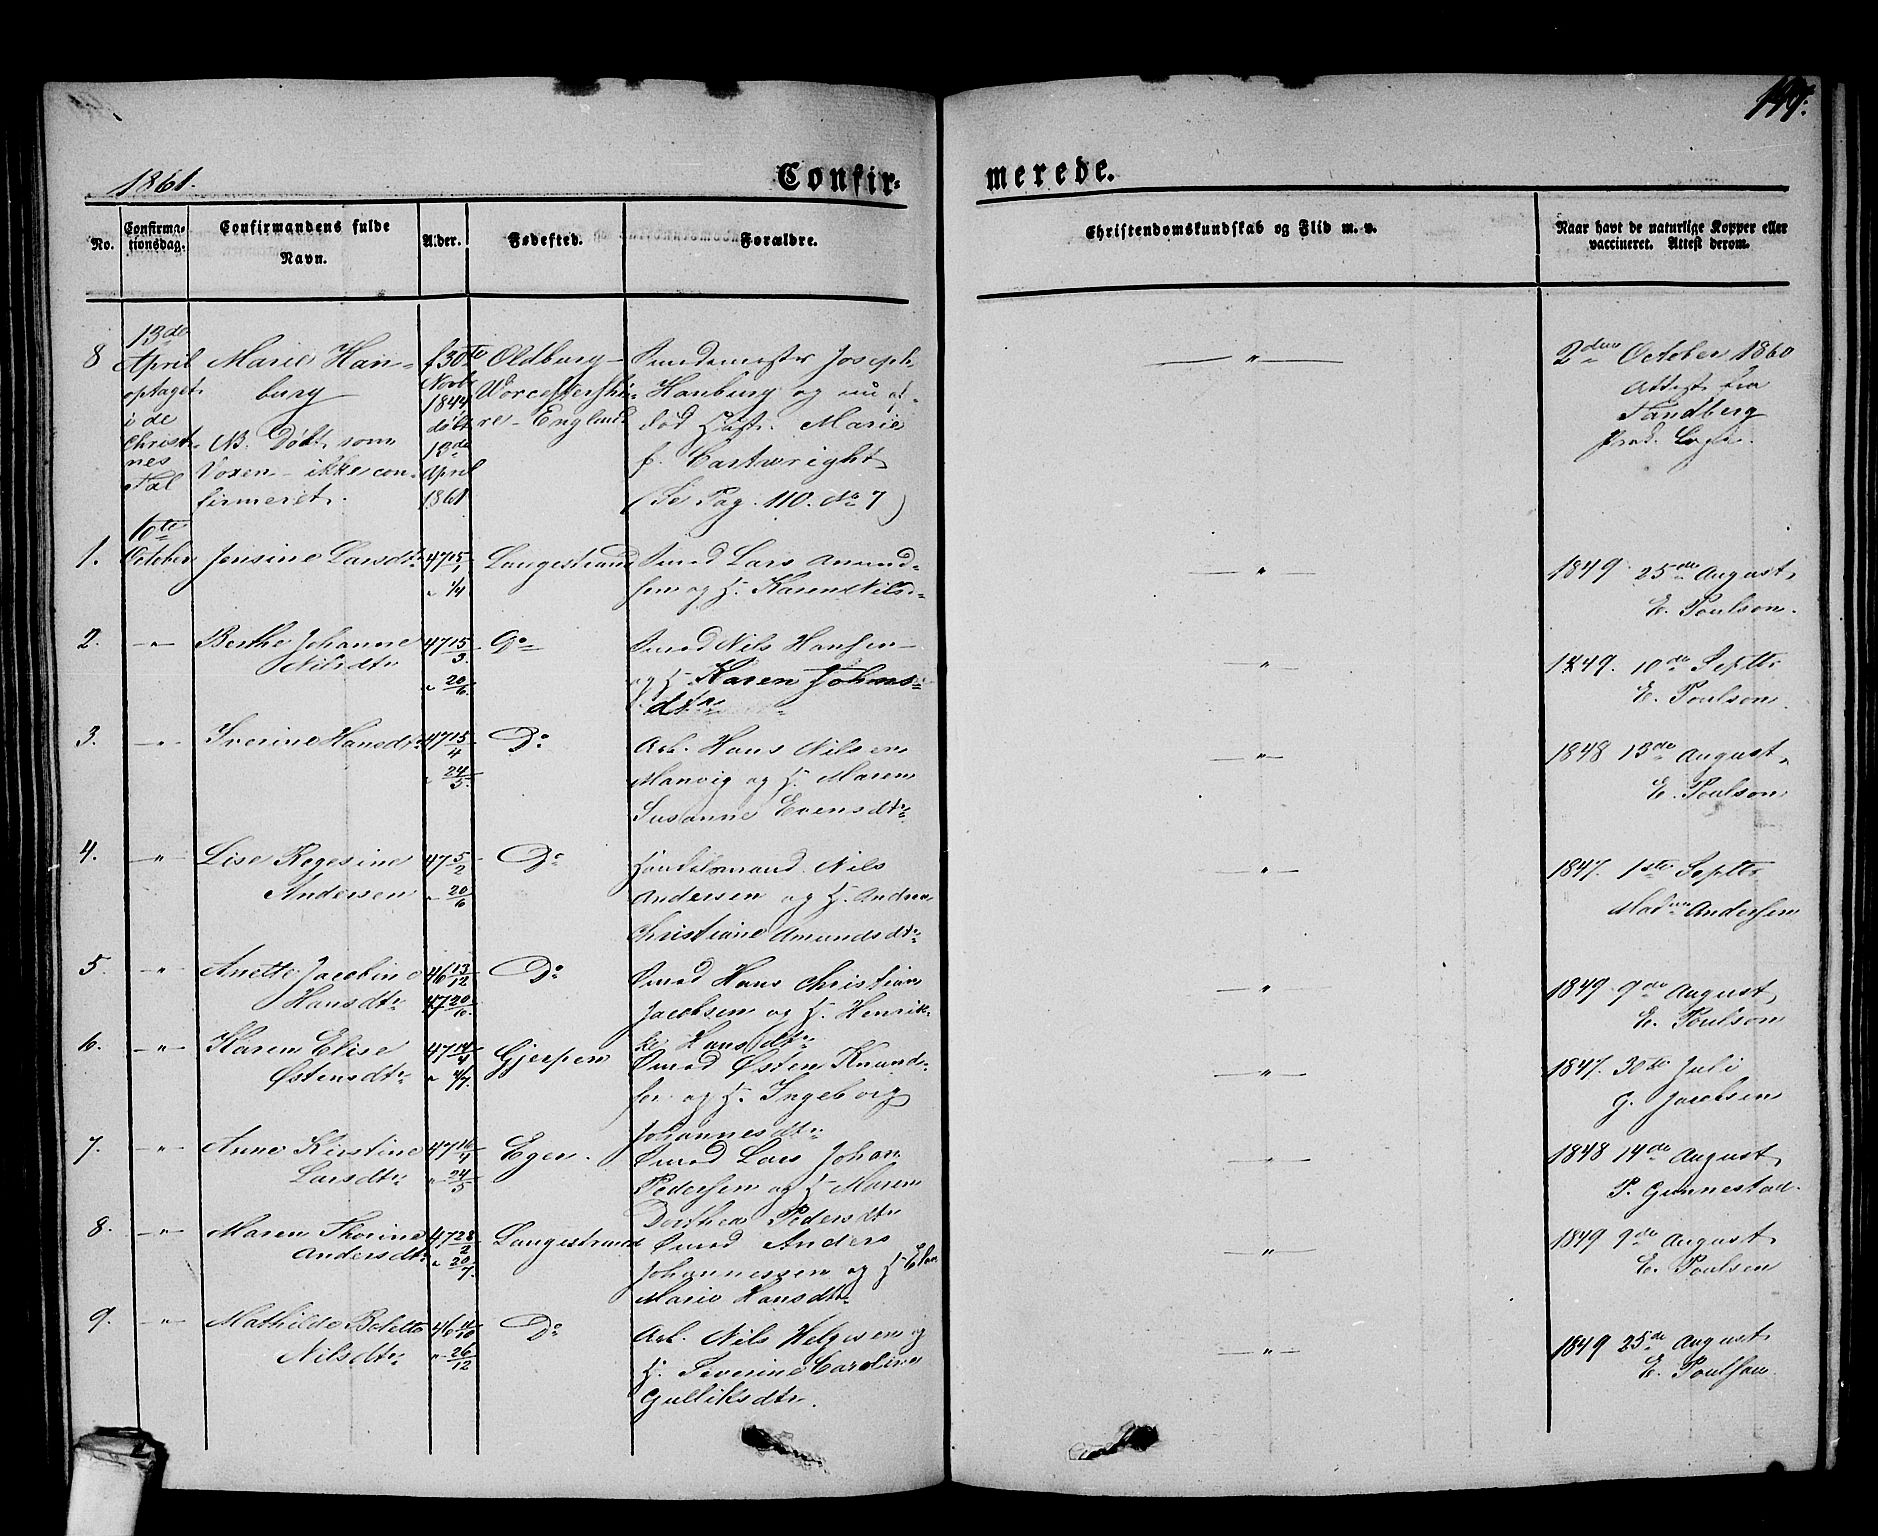 149.
1861.
Confir-
merede.
No.
Confirma-
tionsdag.
Confirmandens fulde
Navn.
Alder.
Fødested.
Forældre.
Christendomskundskab og Flid m. v.
Naar havt de naturlige Kopper eller
vaccineret. Attest derom.
8
13de
April
optaget
i de
Christ-
nes
Tal
Marie Han-
burg
NB. Døbt som
Voxen - ikke con-
firmeret.
f. 30te
Novbr
1844
døbt
13de
April
1861
Oldbury -
Worcestershi-
re - England
Smedemester Joseph
Hanburg og nu af-
død Hustr. Marie
f. Cartwright
(Se Pag. 110. No 7)
"
2den October 1860
Attest fra
Tandberg
pract. Læge.
1.
10te
October
Jensine Larsdtr
47 15/1
" 1/4
Langestrand
Smed Lars Amund-
sen og H. Karen Nilsd.
"
1849. 25de August
E. Poulson.
2.
"
Berthe Johanne
Nilsdtr
47 15/3.
" 20/6.
Do
Smed Nils Hansen
og H. Karen Johns-
dtr
"
1849. 10de Septbr
E. Poulson.
3.
"
Iverine Hansdtr
47 15/4
" 24/5.
Do
Arb. Hans Nilsen
Manvig og H. Maren
Susanne Evensdtr
"
1848 13de August
E. Poulson
4.
"
Lise Regesine
Andersen
47 5/2
" 20/6
Do
Handelsmand Nils
Andersen og H. Andrea
Christiane Amundsdtr
"
1847. 1ste Septbr
Madm Andersen
5.
"
Anette Jacobine
Hansdtr
46 13/12
47 20/6.
Do
Smed Hans Christian
Jacobsen og H. Henrik-
ke Hansdtr
"
1849. 9de August
E. Poulson
6.
"
Karen Elise
Østensdtr
47 14/4
" 4/7.
Gjerpen
Smed Østen Knud-
sen og H. Ingeborg
Johannesdtr
"
1847. 30te Juli
G. Jacobsen
7.
"
Anne Kirstine
Larsdtr
47 16/4
" 24/5
Eger.
Smed Lars Johan
Pedersen og H. Maren
Dorthea Pedersdtr
"
1848 14de August
P. Gunnestad.
8.
"
Maren Thorine
Andersdtr
47 28/2
" 20/7.
Langestrand
Smed Anders
Johannessen og H. Else
Marie Hansdtr
"
1849 9de August
E. Poulson
9.
"
Mathilde Bolette
Nilsdtr
46 11/10
" 26/12
Do
Arb. Nils Helgesen og
H. Severine Caroline
Gulliksdtr.
"
1849 25de August
E. Poulson